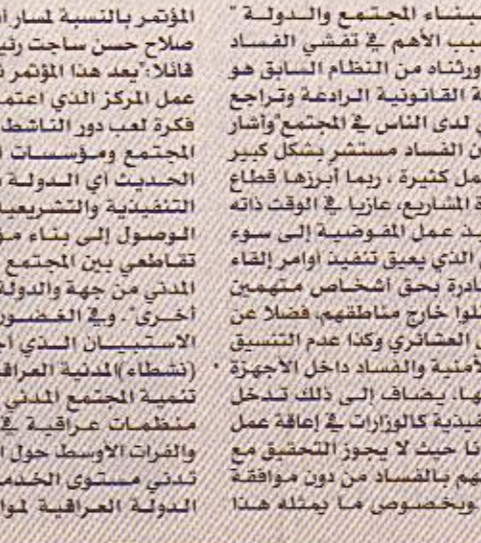 ـبناء المجتمع والدولة "
ـبب الأهم في تفشي الفساد
ورثناه من النظام السابق هو
ـة القانونية الرادعة وتراجع
ـي لدى الناس في المجتمع"وأشار
ـن الفساد مستشر بشكل كبير
ـمل كثيرة ، ربما أبرزها قطاع
ـة المشاريع، عازيا في الوقت ذاته
ـيذ عمل المفوضية إلى سوء
الذي يعيق تنفيذ أوامر إلقاء
ـادرة بحق أشخاص متهمين
ـلوا خارج مناطقهم، فضلا عن
العشائري وكذا عدم التنسيق
لأمنية والفساد داخل الأجهزة
ـها، يضاف إلى ذلك تدخل
ـفيذية كالوزارات في إعاقة عمل
ـنا حيث لا يجوز التحقيق مع
ـهم بالفساد من دون موافقة
وبخصوص ما يمثله هذا
المؤتمر بالنسبة لمسار ا
صلاح حسن ساجت رئيـ
قائلا:"يعد هذا المؤتمر
عمل المركز الذي اعتمـ
فكرة لعب دور الناشط
المجتمع ومؤسسات ا
الحديث أي الدولة
التنفيذية والتشريعيـ
الوصول إلى بناء مـ
تقاطعي بين المجتمع
المدني من جهة والدولة
أخرى". وفي الغضـون
الاستبيان الذي اجـ
(نشطاء)المدنية العراقيـ
تنمية المجتمع المدني
منظمات عراقية في
والفرات الأوسط حول ا
تدني مستوى الخدمـ
الدولة العراقية لموا